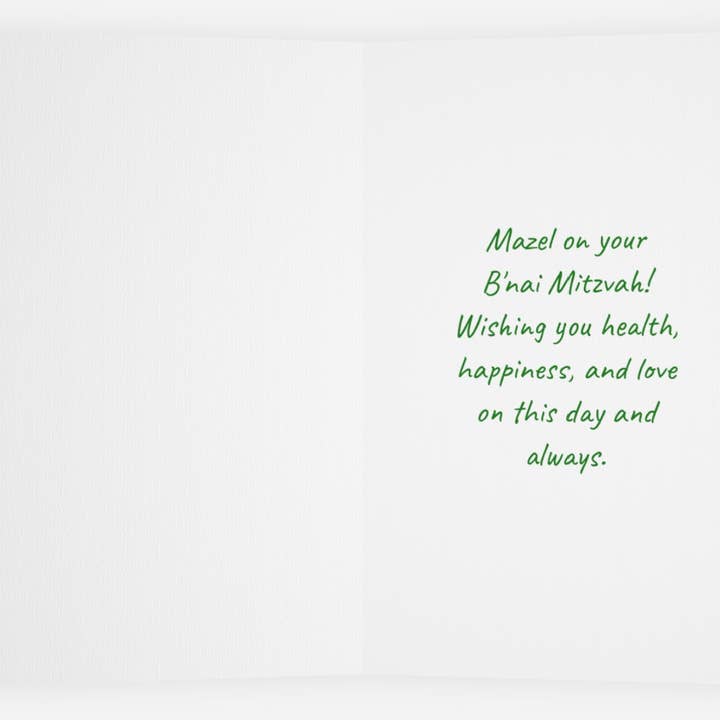 Mazel on your
B'nai Mitzvah!
Wishing you health,
happiness, and love
on this day and
always.